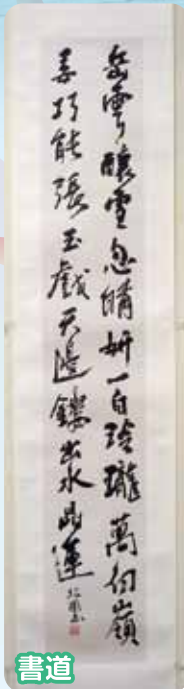 岳雲釀雪忽晴妍一白玲瓏萬仞嶺
美巧能張玉戲天邊鏤出水晶蓮
書道